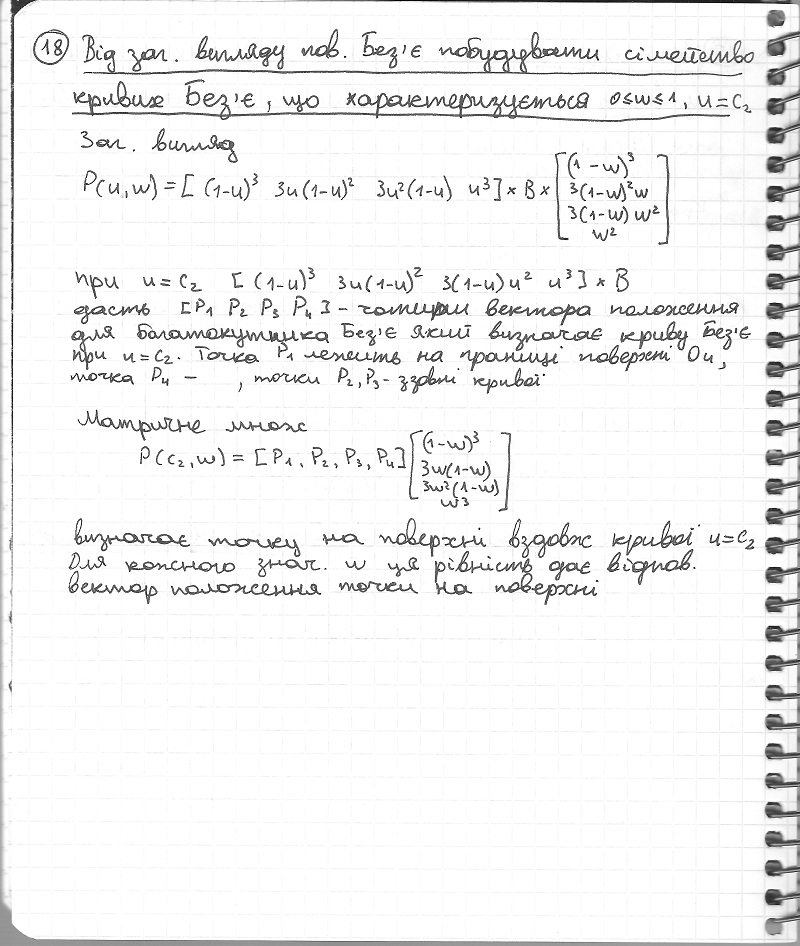 18 Від заг. вигляду пов. Без'є побудувати сімейство
кривих Без'є, що характеризується 0≤w≤1, u=C₂
Заг. вигляд
P(u,w) = [ (1-u)³ 3u(1-u)² 3u²(1-u) u³ ] × B × [ (1-w)³
3(1-w)²w
3(1-w)w²
w² ]
при u=C₂ [ (1-u)³ 3u(1-u)² 3(1-u)u² u³ ] × B
дасть [P₁ P₂ P₃ P₄] - чотири вектора положення
для багатокутника Без'є який визначає криву Без'є
при u=C₂. Точка P₁ лежить на границі поверхні Ou,
точка P₄ – , точки P₂, P₃ - ззовні кривої
Матричне множ
P(C₂,w) = [P₁, P₂, P₃, P₄] [ (1-w)³
3w(1-w)
3w²(1-w)
w³ ]
визначає точку на поверхні вздовж кривої u=C₂
Для кожного знач. w ця рівність дає відпов.
вектор положення точки на поверхні